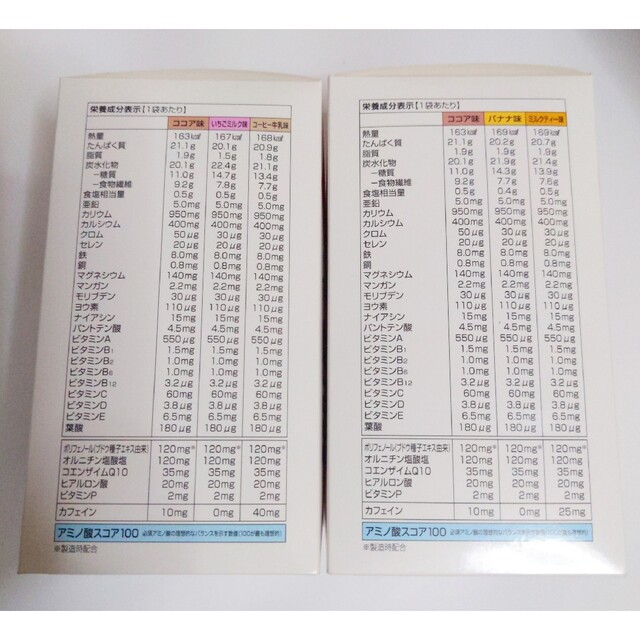 栄養成分表示【1袋あたり】
ココア味 いちごミルク味 コーヒー牛乳味
熱量 163kcal 167kcal 168kcal
たんぱく質 21.1g 20.1g 20.9g
脂質 1.9g 1.5g 1.8g
炭水化物 20.1g 22.4g 21.1g
−糖質 11.0g 14.7g 13.4g
−食物繊維 9.2g 7.8g 7.7g
食塩相当量 0.5g 0.5g 0.5g
亜鉛 5.0mg 5.0mg 5.0mg
カリウム 950mg 950mg 950mg
カルシウム 400mg 400mg 400mg
クロム 50μg 30μg 30μg
セレン 20μg 20μg 20μg
鉄 8.0mg 8.0mg 8.0mg
銅 0.8mg 0.8mg 0.8mg
マグネシウム 140mg 140mg 140mg
マンガン 2.2mg 2.2mg 2.2mg
モリブデン 30μg 30μg 30μg
ヨウ素 110μg 110μg 110μg
ナイアシン 15mg 15mg 15mg
パントテン酸 4.5mg 4.5mg 4.5mg
ビタミンA 550μg 550μg 550μg
ビタミンB1 1.5mg 1.5mg 1.5mg
ビタミンB2 1.0mg 1.0mg 1.0mg
ビタミンB6 1.0mg 1.0mg 1.0mg
ビタミンB12 3.2μg 3.2μg 3.2μg
ビタミンC 60mg 60mg 60mg
ビタミンD 3.8μg 3.8μg 3.8μg
ビタミンE 6.5mg 6.5mg 6.5mg
葉酸 180μg 180μg 180μg
ポリフェノール(ブドウ種子エキス由来) 120mg※ 120mg※ 120mg※
オルニチン塩酸塩 120mg 120mg 120mg
コエンザイムQ10 35mg 35mg 35mg
ヒアルロン酸 20mg 20mg 20mg
ビタミンP 2mg 2mg 2mg
カフェイン 10mg 0mg 40mg
アミノ酸スコア100 必須アミノ酸の理想的なバランスを示す数値(100が最も理想的)
※製造時配合
栄養成分表示【1袋あたり】
ココア味 バナナ味 ミルクティー味
熱量 163kcal 169kcal 169kcal
たんぱく質 21.1g 20.2g 20.7g
脂質 1.9g 1.9g 1.9g
炭水化物 20.1g 21.9g 21.4g
−糖質 11.0g 14.3g 13.9g
−食物繊維 9.2g 7.7g 7.6g
食塩相当量 0.5g 0.4g 0.5g
亜鉛 5.0mg 5.0mg 5.0mg
カリウム 950mg 950mg 950mg
カルシウム 400mg 400mg 400mg
クロム 50μg 30μg 30μg
セレン 20μg 20μg 20μg
鉄 8.0mg 8.0mg 8.0mg
銅 0.8mg 0.8mg 0.8mg
マグネシウム 140mg 140mg 140mg
マンガン 2.2mg 2.2mg 2.2mg
モリブデン 30μg 30μg 30μg
ヨウ素 110μg 110μg 110μg
ナイアシン 15mg 15mg 15mg
パントテン酸 4.5mg 4.5mg 4.5mg
ビタミンA 550μg 550μg 550μg
ビタミンB1 1.5mg 1.5mg 1.5mg
ビタミンB2 1.0mg 1.0mg 1.0mg
ビタミンB6 1.0mg 1.0mg 1.0mg
ビタミンB12 3.2μg 3.2μg 3.2μg
ビタミンC 60mg 60mg 60mg
ビタミンD 3.8μg 3.8μg 3.8μg
ビタミンE 6.5mg 6.5mg 6.5mg
葉酸 180μg 180μg 180μg
ポリフェノール(ブドウ種子エキス由来) 120mg※ 120mg※ 120mg※
オルニチン塩酸塩 120mg 120mg 120mg
コエンザイムQ10 35mg 35mg 35mg
ヒアルロン酸 20mg 20mg 20mg
ビタミンP 2mg 2mg 2mg
カフェイン 10mg 0mg 25mg
アミノ酸スコア100 必須アミノ酸の理想的なバランスを示す数値(100が最も理想的)
※製造時配合